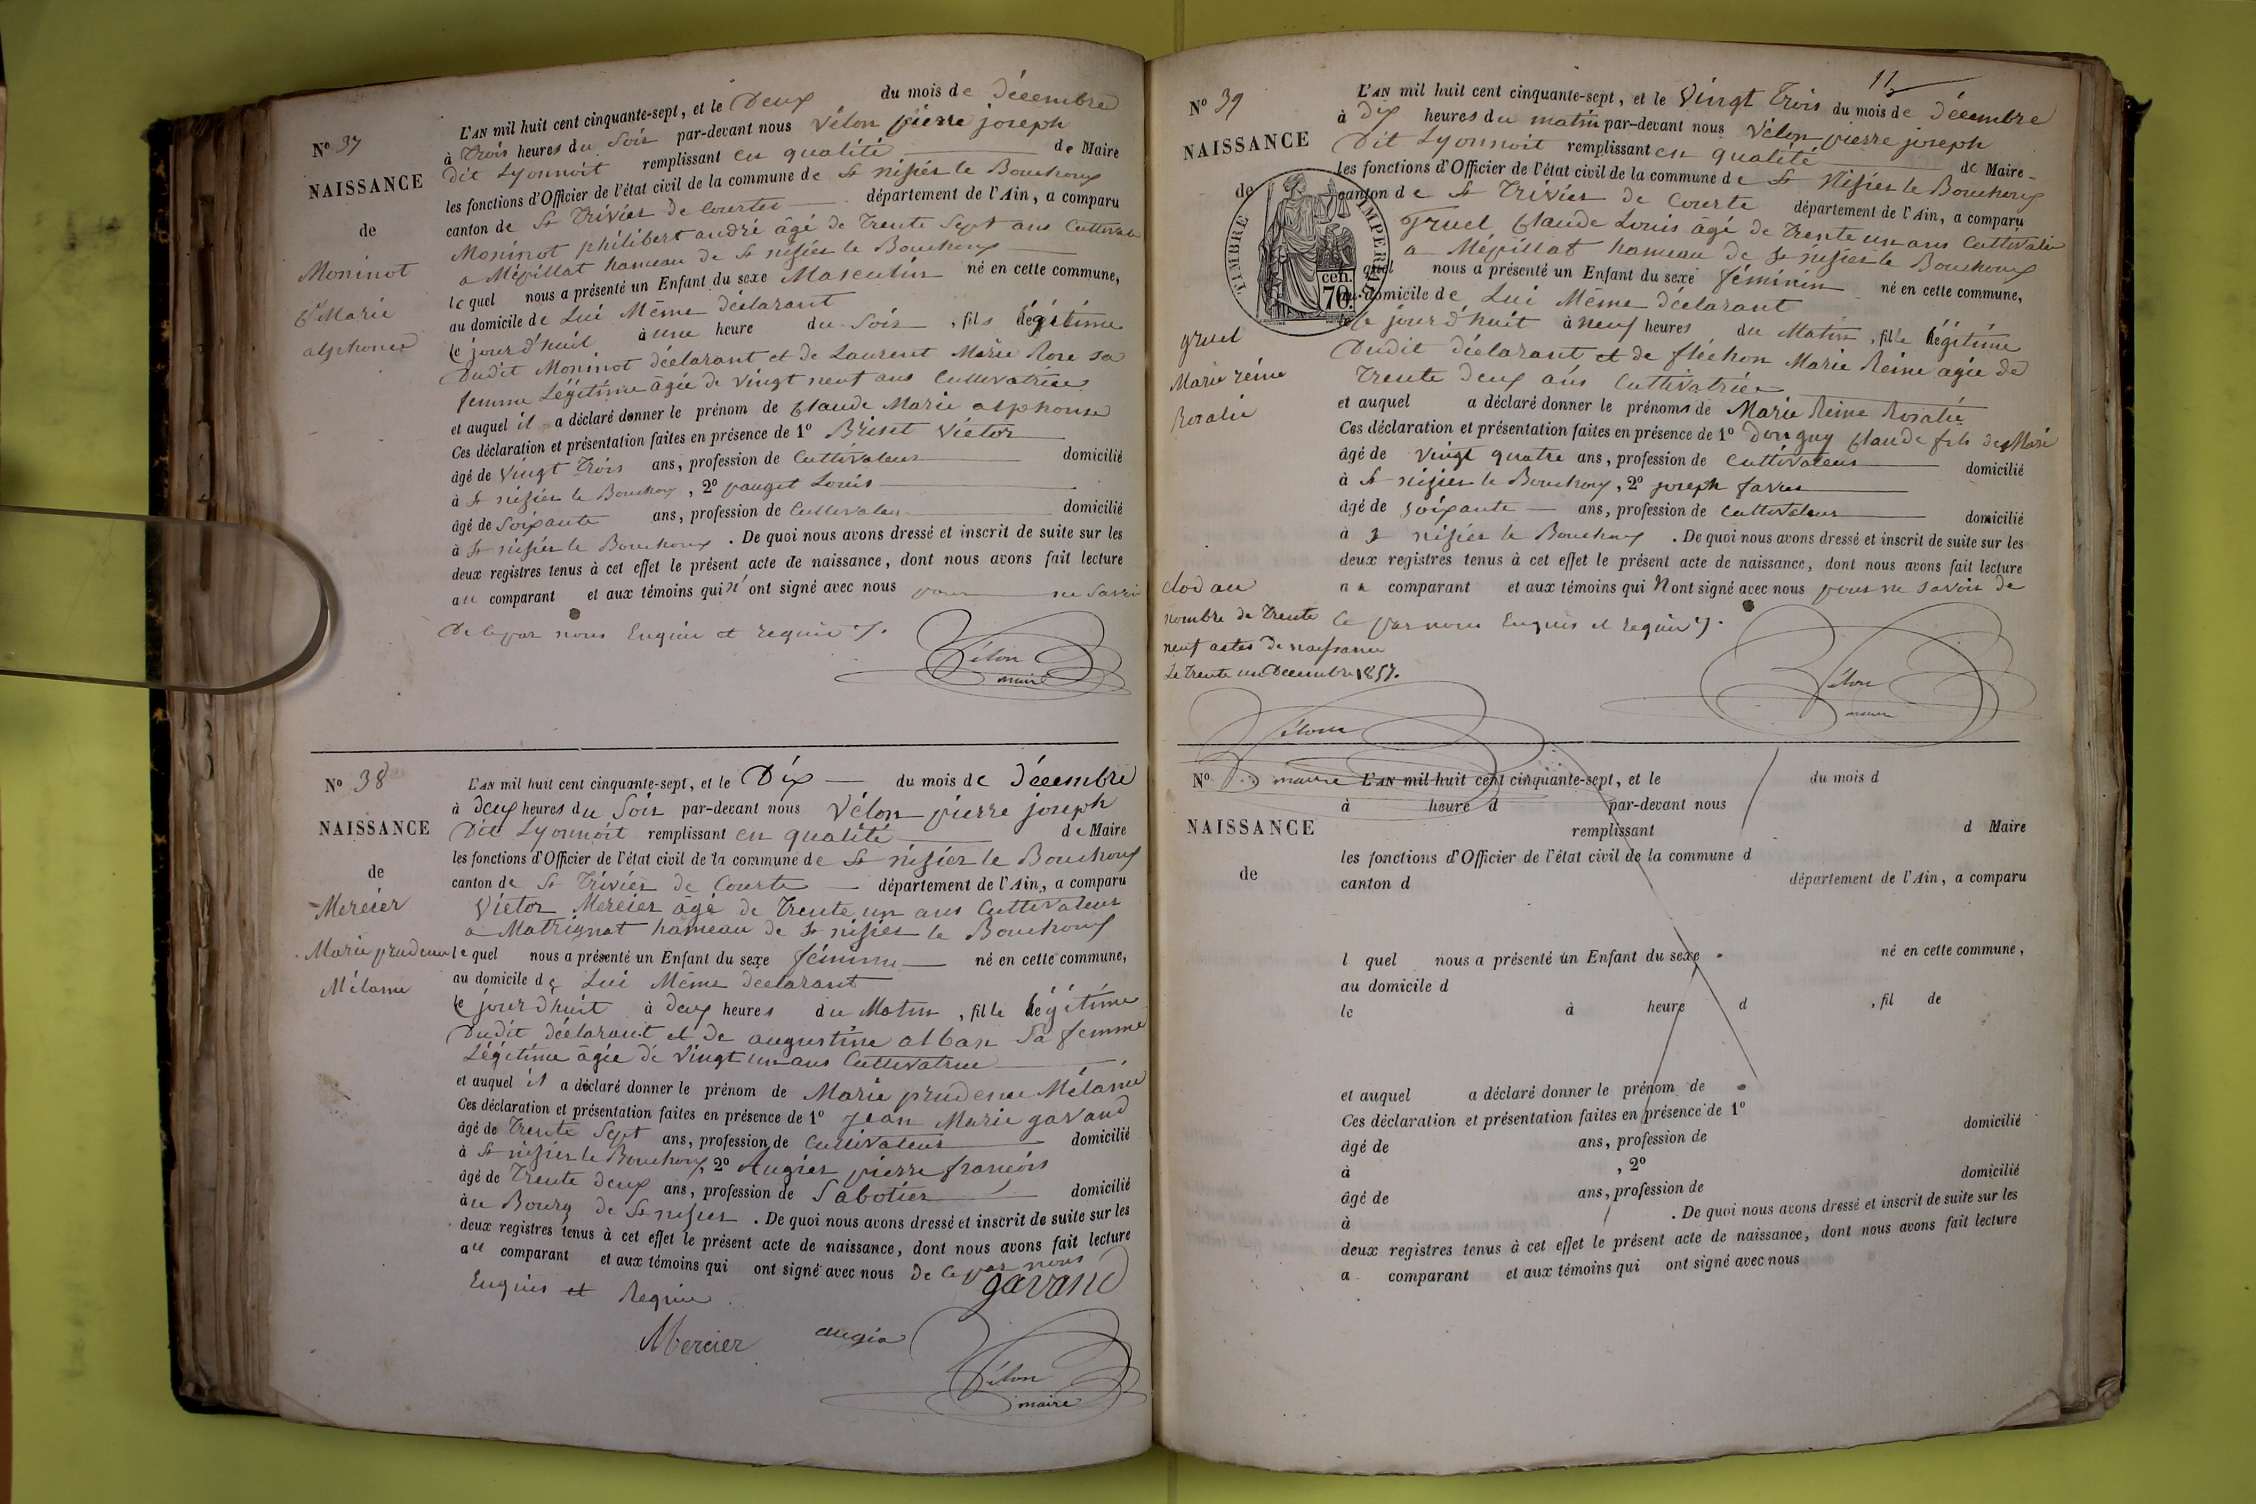 N.º 37
NAISSANCE
de
Moninot
Cde Marie
alphonse
L'AN mil huit cent cinquante-sept, et le Deux du mois de Décembre
à Trois heures du Soir par-devant nous Vélon pierre joseph
Dit Lyonnoit remplissant en qualité de Maire
les fonctions d'Officier de l'état civil de la commune de St nisier le Bouchoux
canton de St Trivier de Courtes département de l'Ain, a comparu
Moninot philibert andré âgé de Trente Sept ans Cultivateur
a Mépillat hameau de St nisier le Bouchoux
lequel nous a présenté un Enfant du sexe Masculin né en cette commune,
au domicile de Lui Même déclarant
le jour d'huit à une heure du Soir, fils légitime
Dudit Moninot déclarant et de Laurent Marie Rose sa
femme Légitime âgée de vingt neuf ans Cultivatrice
et auquel il a déclaré donner le prénom de Claude Marie alphonse
Ces déclaration et présentation faites en présence de 1º Briset Victor
âgé de Vingt Trois ans, profession de Cultivateur domicilié
à St nisier le Bouchoux, 2º pauget Louis
âgé de Soixante ans, profession de Cultivateur domicilié
à St nisier le Bouchoux. De quoi nous avons dressé et inscrit de suite sur les
deux registres tenus à cet effet le présent acte de naissance, dont nous avons fait lecture
au comparant et aux témoins qui n'ont signé avec nous pour ne Savoir
De ce par nous Enquis et requis
Vélon
maire
N.º 38
NAISSANCE
de
Mercier
Marie prudence
Mélanie
L'AN mil huit cent cinquante-sept, et le Dix du mois de Décembre
à deux heures du Soir par-devant nous Vélon pierre joseph
Dit Lyonnoit remplissant en qualité de Maire
les fonctions d'Officier de l'état civil de la commune de St nisier le Bouchoux
canton de St Trivier de Courte département de l'Ain, a comparu
Victor Mercier âgé de Trente un ans Cultivateur
a Matrignat hameau de St nisier le Bouchoux
lequel nous a présenté un Enfant du sexe féminin né en cette commune,
au domicile de Lui Même déclarant
le jour d'huit à deux heures du Matin, fille légitime
Dudit déclarant et de augustine alban Sa femme
Légitime âgée de Vingt un ans Cultivatrice
et auquel il a déclaré donner le prénom de Marie prudence Mélanie
Ces déclaration et présentation faites en présence de 1º Jean Marie gavand
âgé de Trente Sept ans, profession de Cultivateur domicilié
à St nisier le Bouchoux, 2º Augier pierre françois
âgé de Trente deux ans, profession de Sabotier domicilié
au Bourg de St nisier. De quoi nous avons dressé et inscrit de suite sur les
deux registres tenus à cet effet le présent acte de naissance, dont nous avons fait lecture
au comparant et aux témoins qui ont signé avec nous De ce par nous
Enquis et Requis
gavand
Mercier augier
Vélon
maire
11
N.º 39
NAISSANCE
de
TIMBRE IMPERIAL
cen. 70.
gruel
Marie reine
Rosalie
L'AN mil huit cent cinquante-sept, et le Vingt Trois du mois de Décembre
à Dix heures du matin par-devant nous Vélon pierre joseph
Dit Lyonnoit remplissant en qualité de Maire
les fonctions d'Officier de l'état civil de la commune de St Nisier le Bouchoux
canton de St Trivier de Courte département de l'Ain, a comparu
gruel Claude Louis âgé de Trente un ans Cultivateur
a Mépillat hameau de St nisier le Bouchoux
quel nous a présenté un Enfant du sexe féminin né en cette commune,
au domicile de Lui Même déclarant
le jour d'huit à neuf heures du Matin, fille légitime
Dudit déclarant et de fléchon Marie Reine agée de
Trente deux ans Cultivatrice
et auquel a déclaré donner le prénoms de Marie Reine Rosalie
Ces déclaration et présentation faites en présence de 1º donguy Claude fils de Marie
âgé de vingt quatre ans, profession de Cultivateur domicilié
à St nisier le Bouchoux, 2º joseph favier
âgé de soixante ans, profession de Cultivateur domicilié
à St nisier le Bouchoux. De quoi nous avons dressé et inscrit de suite sur les
deux registres tenus à cet effet le présent acte de naissance, dont nous avons fait lecture
au comparant et aux témoins qui N ont signé avec nous pour ne savoir de
ce par nous Enquis et requis
Vélon
maire
clos au
nombre de Trente
neuf actes de naissance
Le Trente un Décembre 1857.
Vélon
maire
N.º
NAISSANCE
de
L'AN mil huit cent cinquante-sept, et le du mois d
à heure d par-devant nous
remplissant d Maire
les fonctions d'Officier de l'état civil de la commune d
canton d département de l'Ain, a comparu
l quel nous a présenté un Enfant du sexe né en cette commune,
au domicile d
le à heure d , fil de
et auquel a déclaré donner le prénom de
Ces déclaration et présentation faites en présence de 1º
âgé de ans, profession de domicilié
à , 2º
âgé de ans, profession de domicilié
à . De quoi nous avons dressé et inscrit de suite sur les
deux registres tenus à cet effet le présent acte de naissance, dont nous avons fait lecture
a comparant et aux témoins qui ont signé avec nous